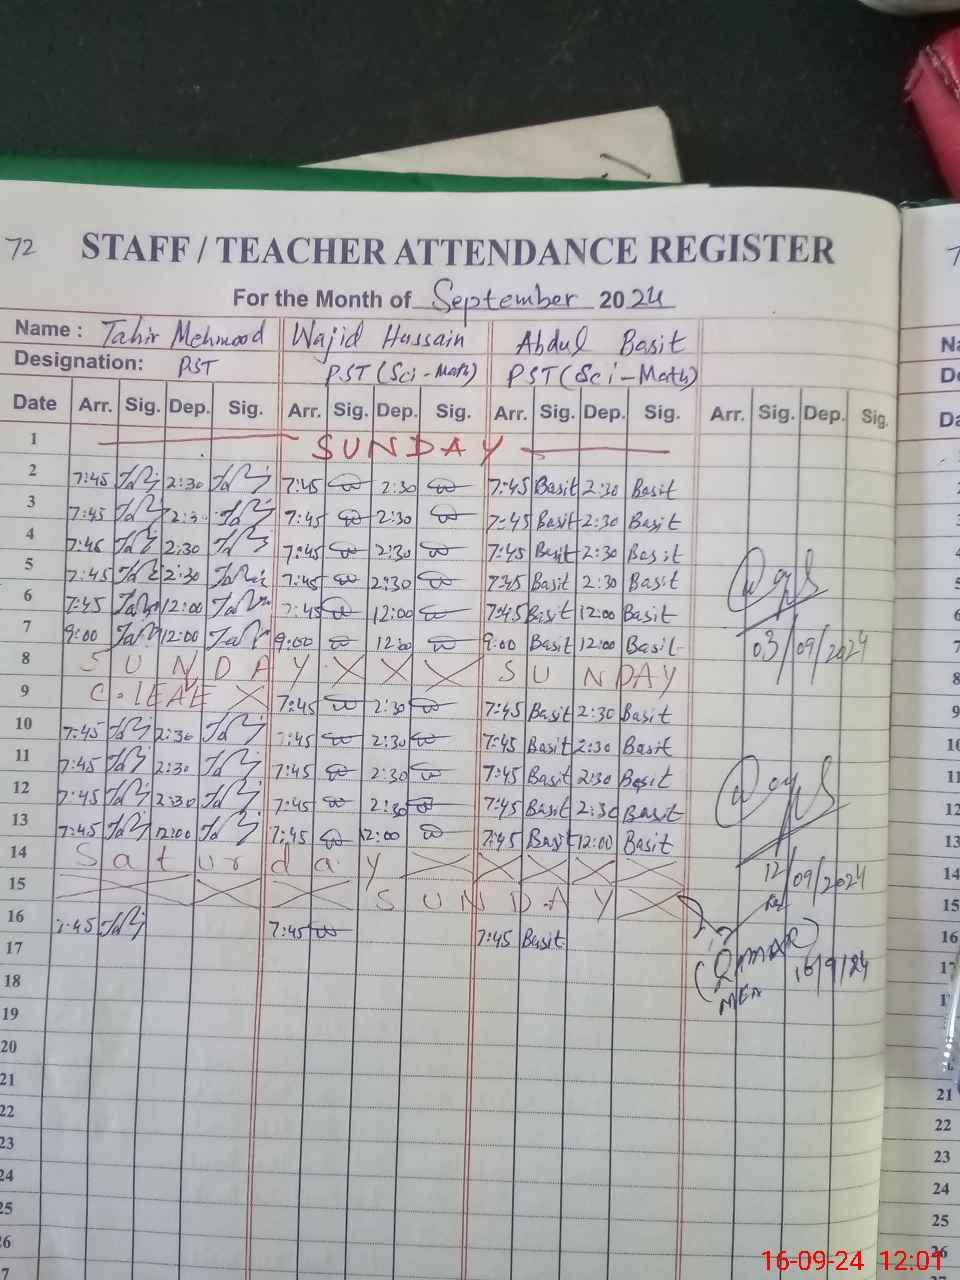 72 STAFF / TEACHER ATTENDANCE REGISTER
For the Month of September 2024
Name : Tahir Mehmood Wajid Hussain Abdul Basit
Designation: PST PST (Sci-Math) PST (Sci-Math)
Date Arr. Sig. Dep. Sig. Arr. Sig. Dep. Sig. Arr. Sig. Dep. Sig. Arr. Sig. Dep. Sig.
1 SUNDAY
2 7:45 2:30 7:45 2:30 7:45 Basit 2:30 Basit
3 7:45 2:3 7:45 2:30 7:45 Basit 2:30 Basit
4 7:45 2:30 7:45 2:30 7:45 Basit 2:30 Basit
5 7:45 2:30 7:45 2:30 7:45 Basit 2:30 Basit
6 7:45 12:00 7:45 12:00 7:45 Basit 12:00 Basit
7 9:00 12:00 9:00 12:00 9:00 Basit 12:00 Basit
03/09/2024
8 SUNDAY X X X SUNDAY
9 C.LEAE X 7:45 2:30 7:45 Basit 2:30 Basit
10 7:45 2:30 7:45 2:30 7:45 Basit 2:30 Basit
11 7:45 2:30 7:45 2:30 7:45 Basit 2:30 Basit
12 7:45 2:30 7:45 2:30 7:45 Basit 2:30 Basit
13 7:45 12:00 7:45 12:00 7:45 Basit 12:00 Basit
14 Saturday
12/09/2024
15 SUNDAY
16 7:45 7:45 7:45 Basit
(QMAR)
MEA 16/9/24
17
18
19
20
21
22
23
24
25
26
16-09-24 12:01